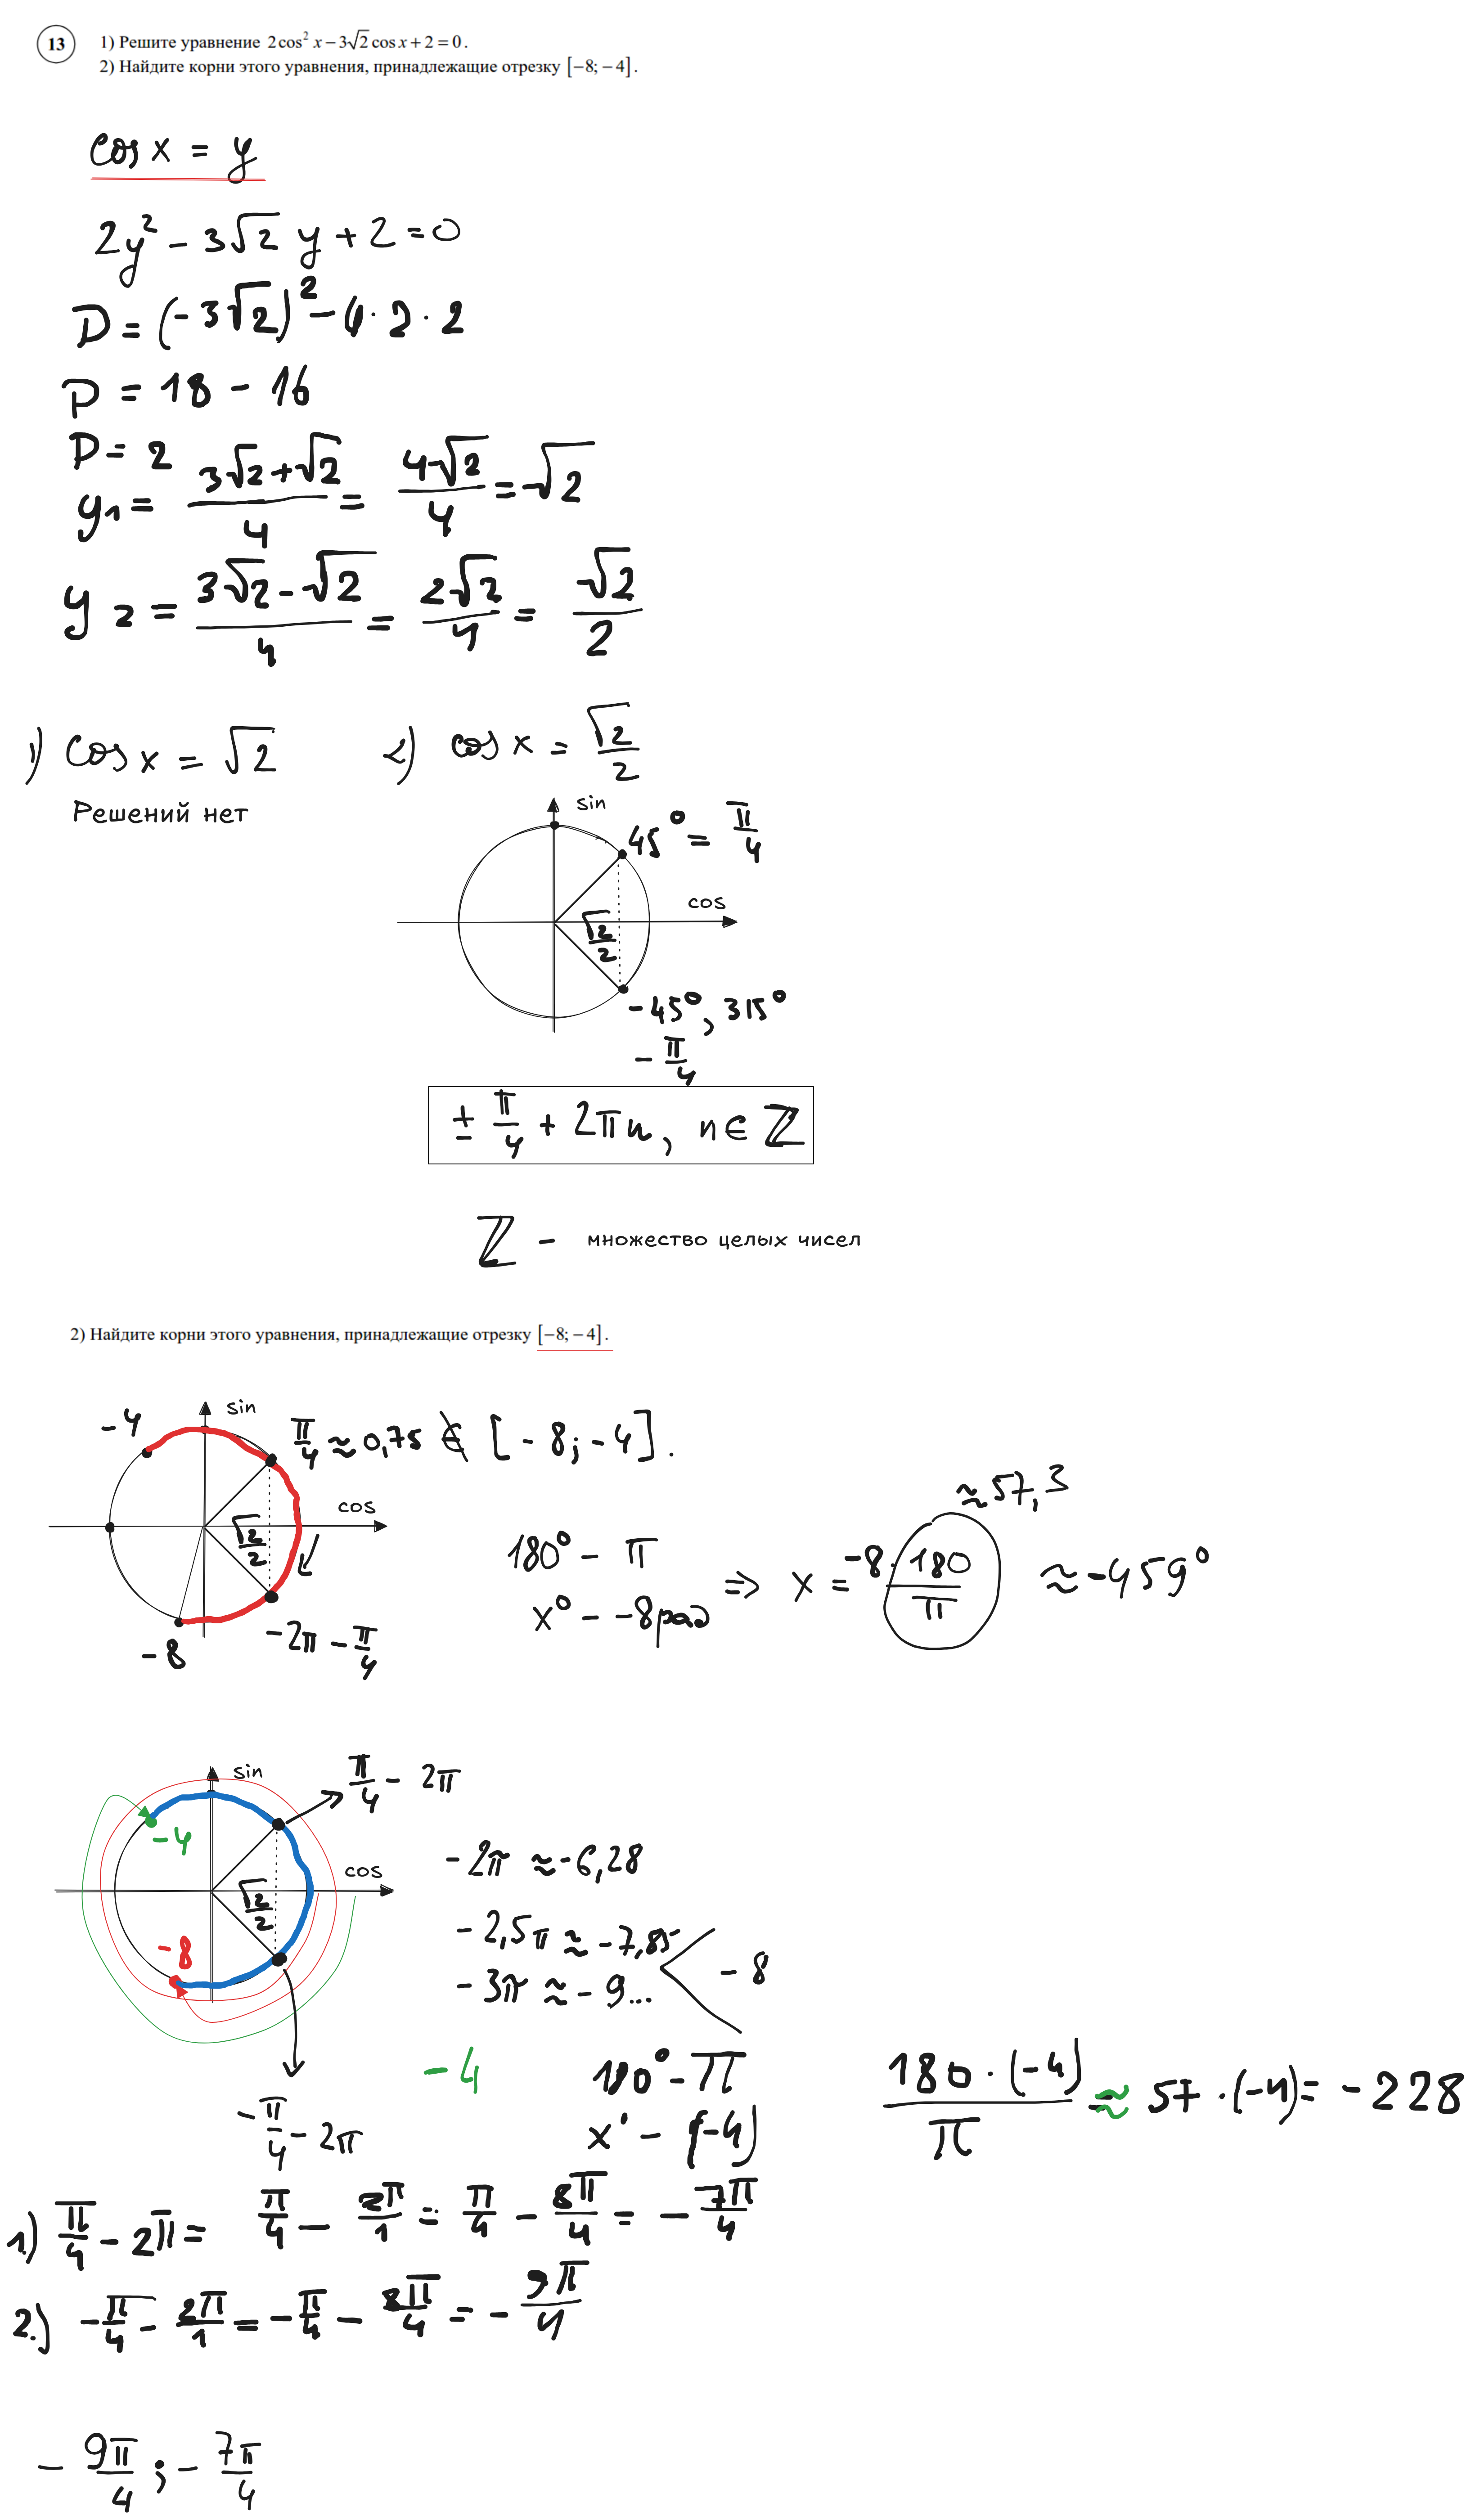 13
1) Решите уравнение 2cos² x − 3√2 cos x + 2 = 0.
2) Найдите корни этого уравнения, принадлежащие отрезку [−8; −4].
cos x = y
2y² − 3√2 y + 2 = 0
D = (−3√2)² − 4 · 2 · 2
D = 18 − 16
D = 2
y₁ = (3√2 + √2)/4 = 4√2/4 = √2
y₂ = (3√2 − √2)/4 = 2√2/4 = √2/2
1) cos x = √2
2) cos x = √2/2
Решений нет
sin
45° = π/4
cos
√2/2
−45°, 315°
−π/4
± π/4 + 2πn, n ∈ ℤ
ℤ − множество целых чисел
2) Найдите корни этого уравнения, принадлежащие отрезку [−8; −4].
−4
sin
π/4 ≈ 0,75 ∉ [−8; −4].
cos
√2/2
−8
−2π − π/4
180° − π
x° − −8 рад
⇒ x = −8 · 180/π ≈ −459°
≈ 57,3
sin
π/4 − 2π
−4
cos
√2/2
−8
−π/4 − 2π
−2π ≈ −6,28
−2,5π ≈ −7,85
−3π ≈ −9...
−8
−4
180° − π
x° − (−4)
180 · (−4)/π ≈ 57 · (−4) = −228
1.) π/4 − 2π = π/4 − 2π/1 = π/4 − 8π/4 = −7π/4
2.) −π/4 − 2π/1 = −π/4 − 8π/4 = −9π/4
−9π/4 ; −7π/4